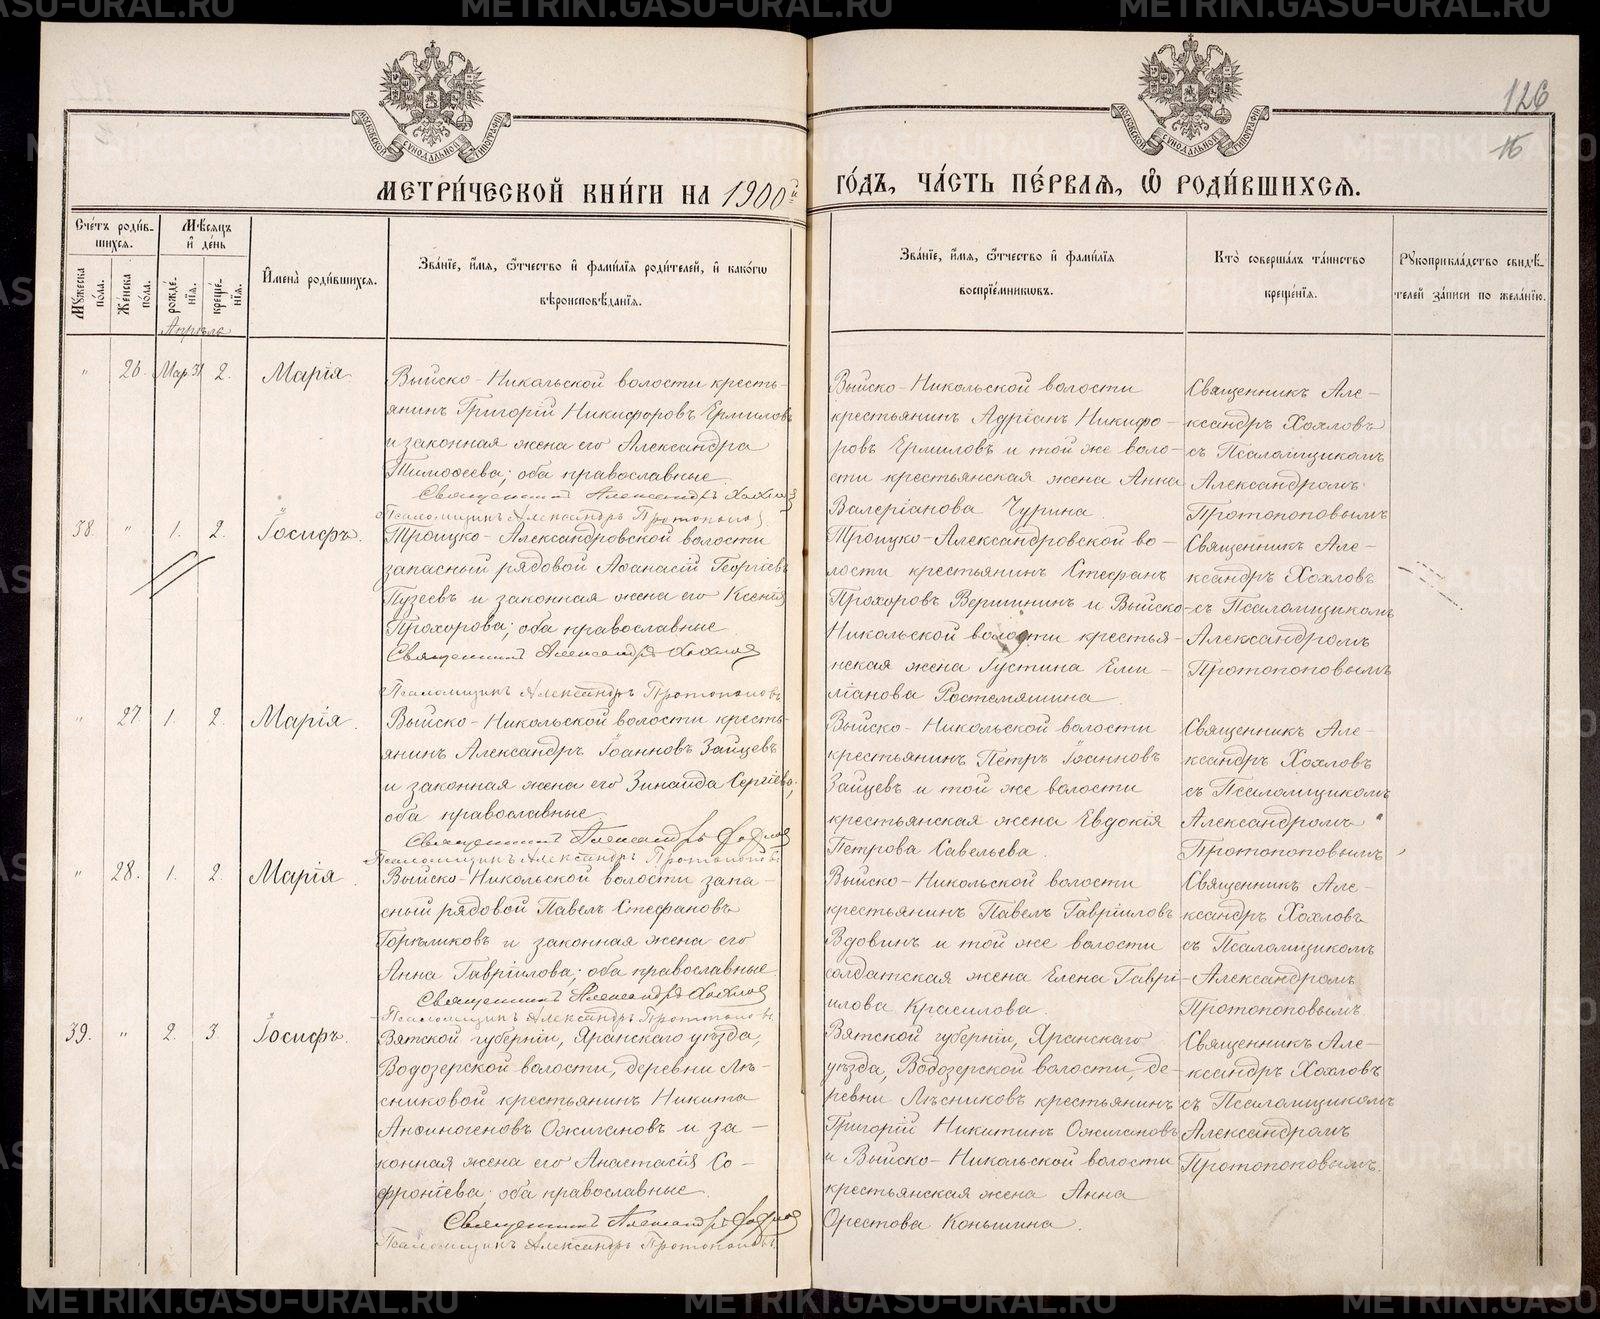 126
16
МОСКОВСКОЙ СУНОДАЛЬНОЙ ТИПОГРАФІИ
МОСКОВСКОЙ СУНОДАЛЬНОЙ ТИПОГРАФІИ
МЕТРИ́ЧЕСКОЙ КНИ́ГИ НА 1900й
ГО́ДЪ, ЧА́СТЬ ПЕ́РВАѦ, Ѽ РОДИ́ВШИХСѦ.
Сче́тъ роди́в-
шихсѧ.
Мѣсѧцъ
и҆ де́нь
Мꙋжеска
по́ла.
Женска
по́ла.
рожде́-
нїѧ.
креще́-
нїѧ.
И҆мена̀ роди́вшихсѧ.
Зва́нїе, и҆́мѧ, ѻ҆́тчество и҆ фами́лїѧ роди́телей, и҆ како́гѡ
вѣроисповѣ́данїѧ.
Зва́нїе, и҆́мѧ, ѻ҆́тчество и҆ фами́лїѧ
воспрїе́мникѡвъ.
Кто̀ соверша́лъ та́инство
креще́нїѧ.
Рꙋкоприкла́дство свидѣ́-
телей за́писи по жела́нїю.
Апрѣль
" 26. Мар. 31 2. Марія
Выйско-Никольской волости кресть-
янинъ Григорій Никифоровъ Ермиловъ
и законная жена его Александра
Тимоѳеева; оба православные.
Священникъ Александръ Хохловъ
Псаломщикъ Александръ Протопоповъ
Выйско-Никольской волости
крестьянинъ Адріанъ Никифо-
ровъ Ермиловъ и той же воло-
сти крестьянская жена Анна
Валеріанова Чурина
Священникъ Але-
ксандръ Хохловъ
съ Псаломщикомъ
Александромъ
Протопоповымъ
38. " 1. 2. Іосифъ.
Троицко-Александровской волости
запасный рядовой Аѳанасій Георгіевъ
Пузеевъ и законная жена его Ксенія
Прохорова; оба православные
Священникъ Александръ Хохловъ
Псаломщикъ Александръ Протопоповъ
Троицко-Александровской во-
лости крестьянинъ Стефанъ
Прохоровъ Вершининъ и Выйско-
Никольской волости крестья-
нская жена Густина Еми-
ліанова
Священникъ Але-
ксандръ Хохловъ
съ Псаломщикомъ
Александромъ
Протопоповымъ
" 27. 1. 2. Марія.
Выйско-Никольской волости кресть-
янинъ Александръ Іоанновъ Зайцевъ
и законная жена его Зинаида Сергіева;
оба православные
Священникъ Александръ Хохловъ
Псаломщикъ Александръ Протопоповъ
Выйско-Никольской волости
крестьянинъ Петръ Іоанновъ
Зайцевъ и той же волости
крестьянская жена Евдокія
Петрова Савельева.
Священникъ Але-
ксандръ Хохловъ
съ Псаломщикомъ
Александромъ
Протопоповымъ
" 28. 1. 2. Марія.
Выйско-Никольской волости запа-
сный рядовой Павелъ Стефановъ
Горѣликовъ и законная жена его
Анна Гавріилова; оба православные
Священникъ Александръ Хохловъ
Псаломщикъ Александръ Протопоповъ
Выйско-Никольской волости
крестьянинъ Павелъ Гавріиловъ
Вдовинъ и той же волости
солдатская жена Елена Гаврі-
илова Красилова.
Священникъ Але-
ксандръ Хохловъ
съ Псаломщикомъ
Александромъ
Протопоповымъ
39. " 2. 3 Іосифъ.
Вятской губерніи, Яранскаго уѣзда,
Водозерской волости, деревни Лѣ-
сниковой крестьянинъ Никита
Анѳиногеновъ Ожигановъ и за-
конная жена его Анастасія Со-
фроніева; оба православные.
Священникъ Александръ Хохловъ
Псаломщикъ Александръ Протопоповъ
Вятской губерніи, Яранскаго
уѣзда, Водозерской волости, де-
ревни Лѣсниковъ крестьянинъ
Григорій Никитинъ Ожигановъ
и Выйско-Никольской волости
крестьянская жена Анна
Орестова Коньшина.
Священникъ Але-
ксандръ Хохловъ
съ Псаломщикомъ
Александромъ
Протопоповымъ.
METRIKI.GASO-URAL.RU